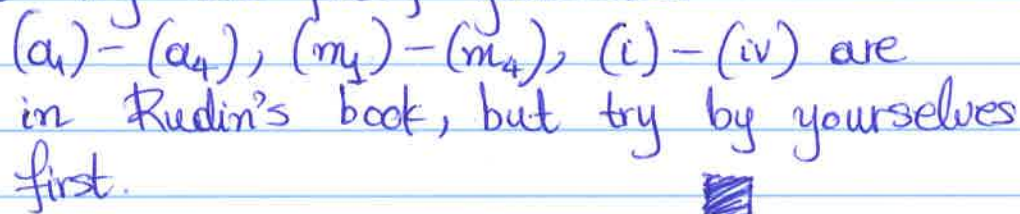 (a₁)-(a₄), (m₁)-(m₄), (i)-(iv) are
in Rudin's book, but try by yourselves
first.